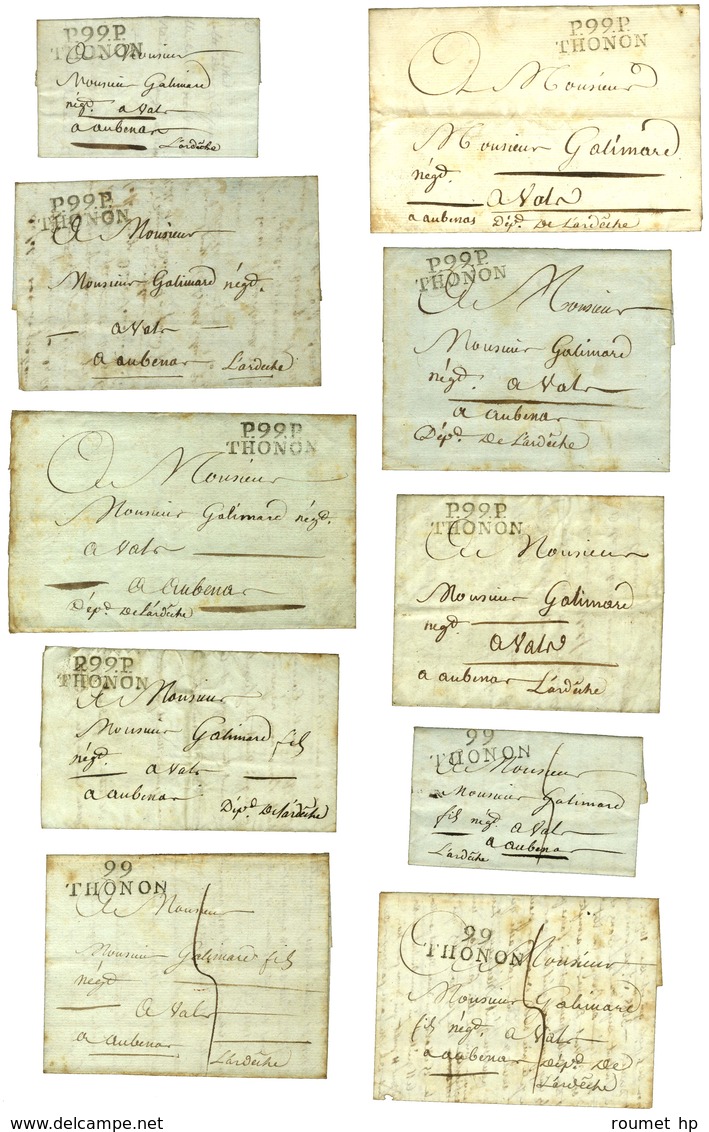 P.99.P.
THONON
A Monsieur
Monsieur Galimard
négt. a Vals
a aubenas
L'ardèche
P.99.P.
THONON
A Monsieur
Monsieur Galimard
négt.
a Vals
a aubenas Dépt. De L'ardèche
P.99.P.
THONON
A Monsieur
Monsieur Galimard négt.
a Vals
a aubenas L'ardèche
P.99.P.
THONON
A Monsieur
Monsieur Galimard
négt. a Vals
a aubenas
Dépt. De L'ardèche
P.99.P.
THONON
A Monsieur
Monsieur Galimard négt.
a Vals
a aubenas
Dépt. De L'ardèche
P.99.P.
THONON
A Monsieur
Monsieur Galimard
négt.
a Vals
a aubenas L'ardèche
P.99.P.
THONON
A Monsieur
Monsieur Galimard fils
négt. a Vals
a aubenas
Dépt. De L'ardèche
99
THONON
A Monsieur
Monsieur Galimard
fils négt. a Vals
a aubenas
L'ardèche
99
THONON
A Monsieur
Monsieur Galimard fils
négt
a Vals
a aubenas
L'ardèche
99
THONON
A Monsieur
Monsieur Galimard
fils négt. a Vals
a aubenas Dépt. De
L'ardèche
roumet hp